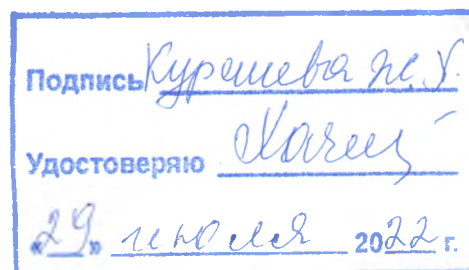 Подпись Курашева Ж.У.
Удостоверяю
«29» июля 2022 г.